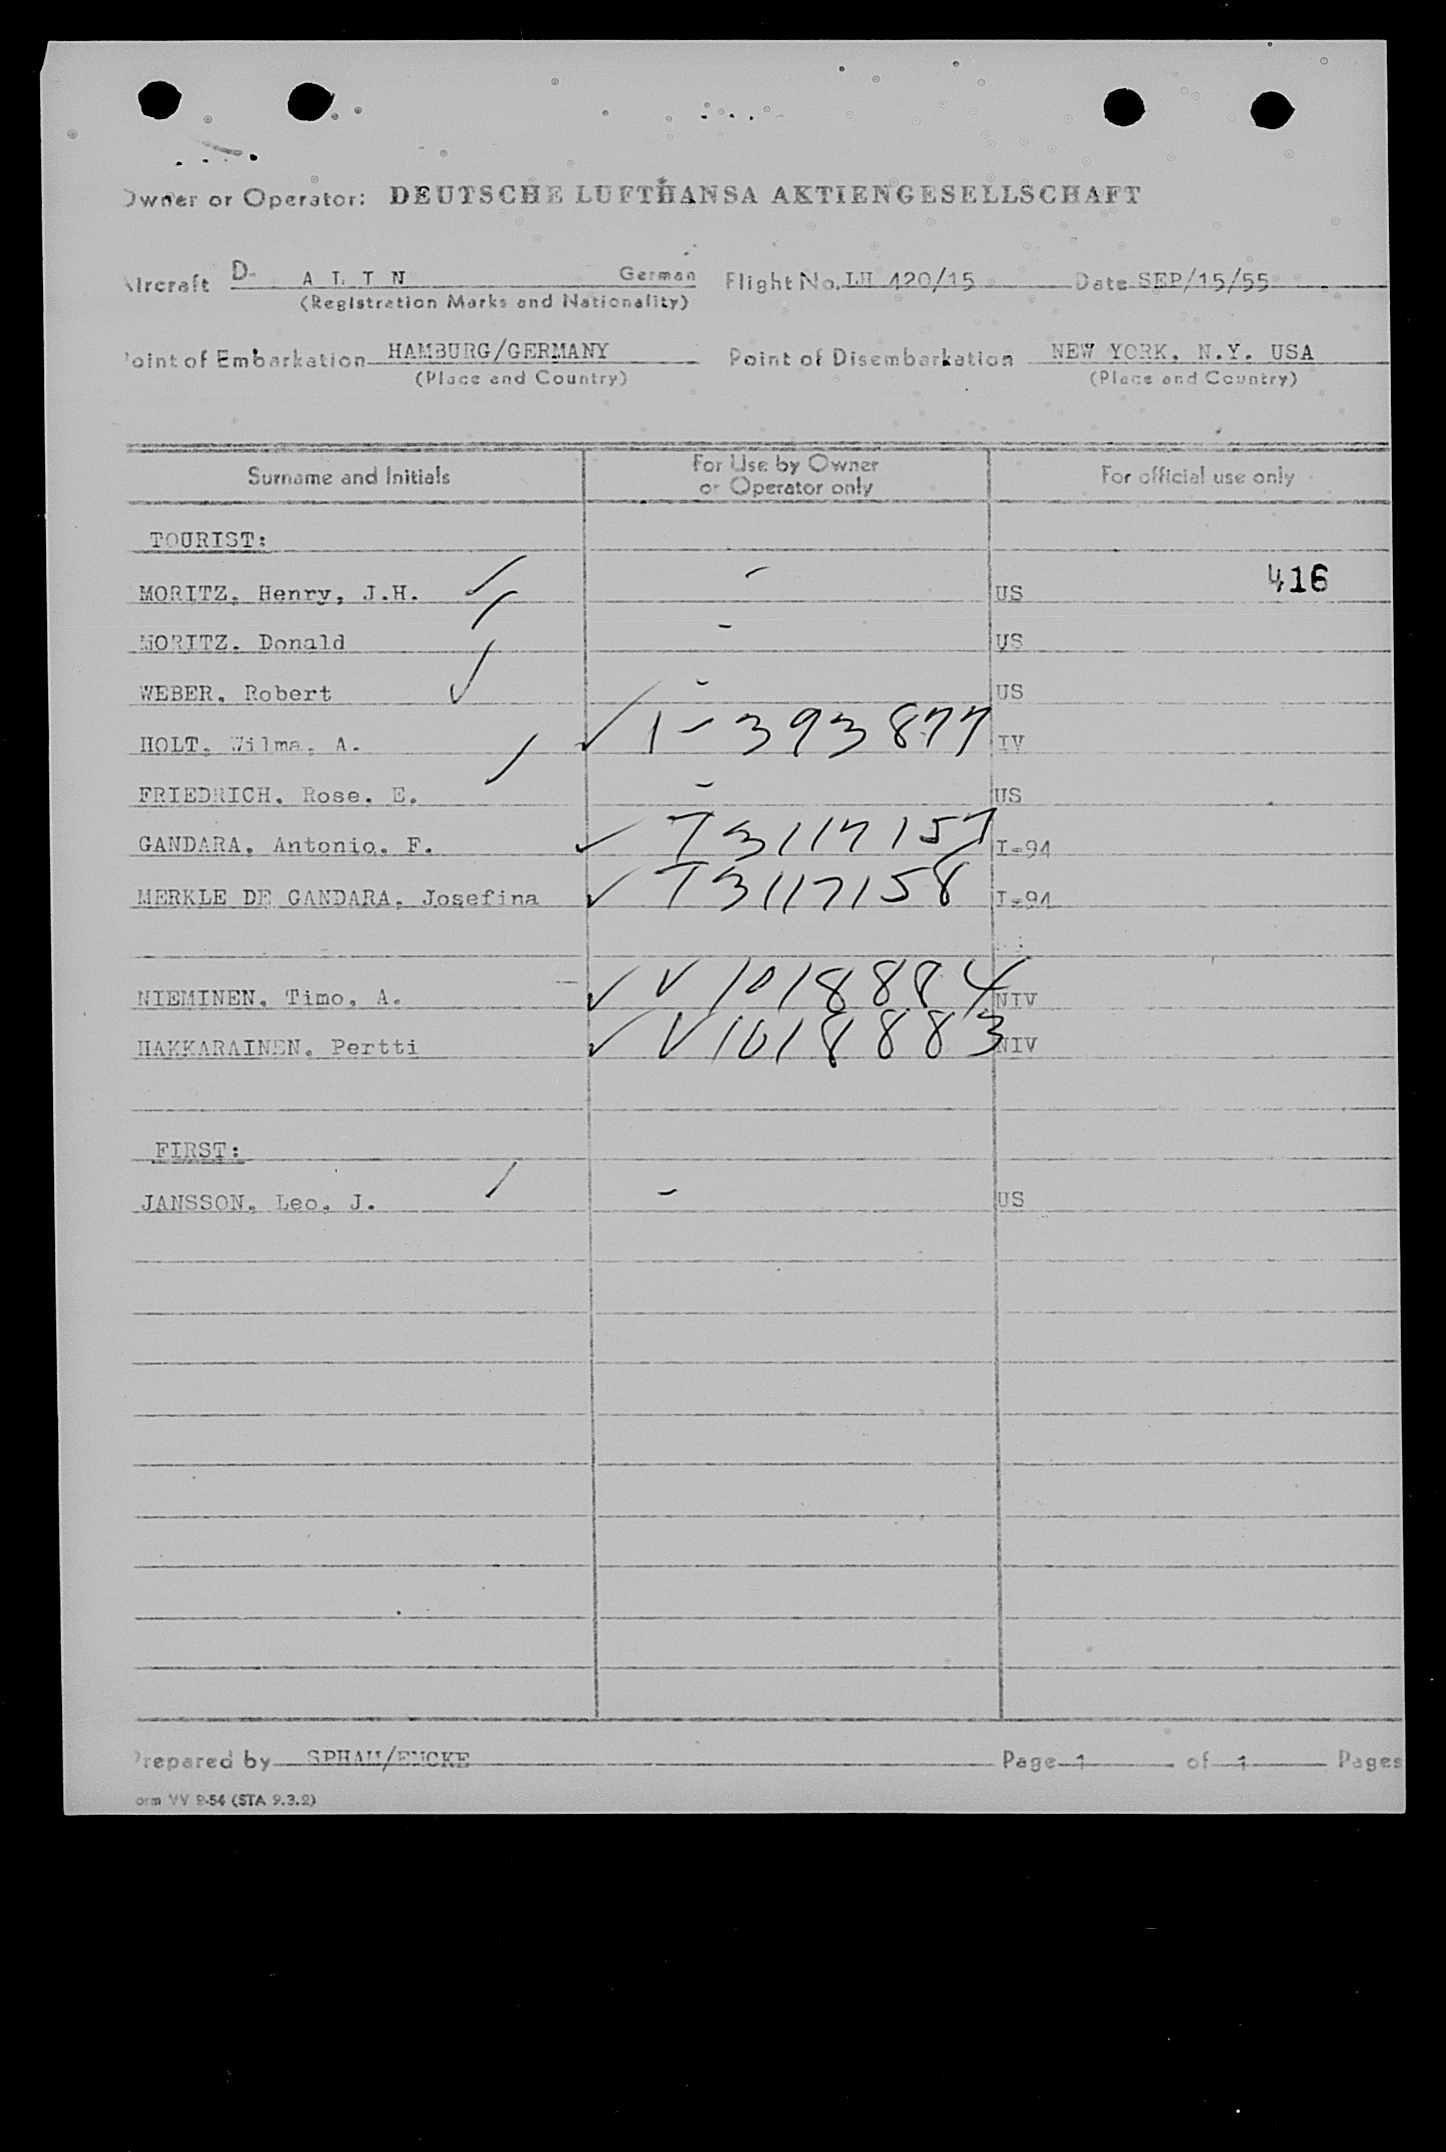 Owner or Operator: DEUTSCHE LUFTHANSA AKTIENGESELLSCHAFT
Aircraft D- A L I N German Flight No. LH 420/15 Date SEP/15/55
(Registration Marks and Nationality)
Point of Embarkation HAMBURG/GERMANY Point of Disembarkation NEW YORK, N.Y. USA
(Place and Country) (Place and Country)
Surname and Initials For Use by Owner or Operator only For official use only
TOURIST:
MORITZ, Henry, J.H. - US 416
MORITZ, Donald - US
WEBER, Robert - US
HOLT, Wilma, A. 1-393877 IV
FRIEDRICH, Rose, E. - US
GANDARA, Antonio, F. T3117157 I-94
MERKLE DE GANDARA, Josefina T3117158 I-94
NIEMINEN, Timo, A. V1018884 NIV
HAKKARAINEN, Pertti V1018883 NIV
FIRST:
JANSSON, Leo, J. - US
Prepared by SPHAU/ENCKE Page 1 of 1 Pages
orm VV 2-54 (STA 9.3.2)